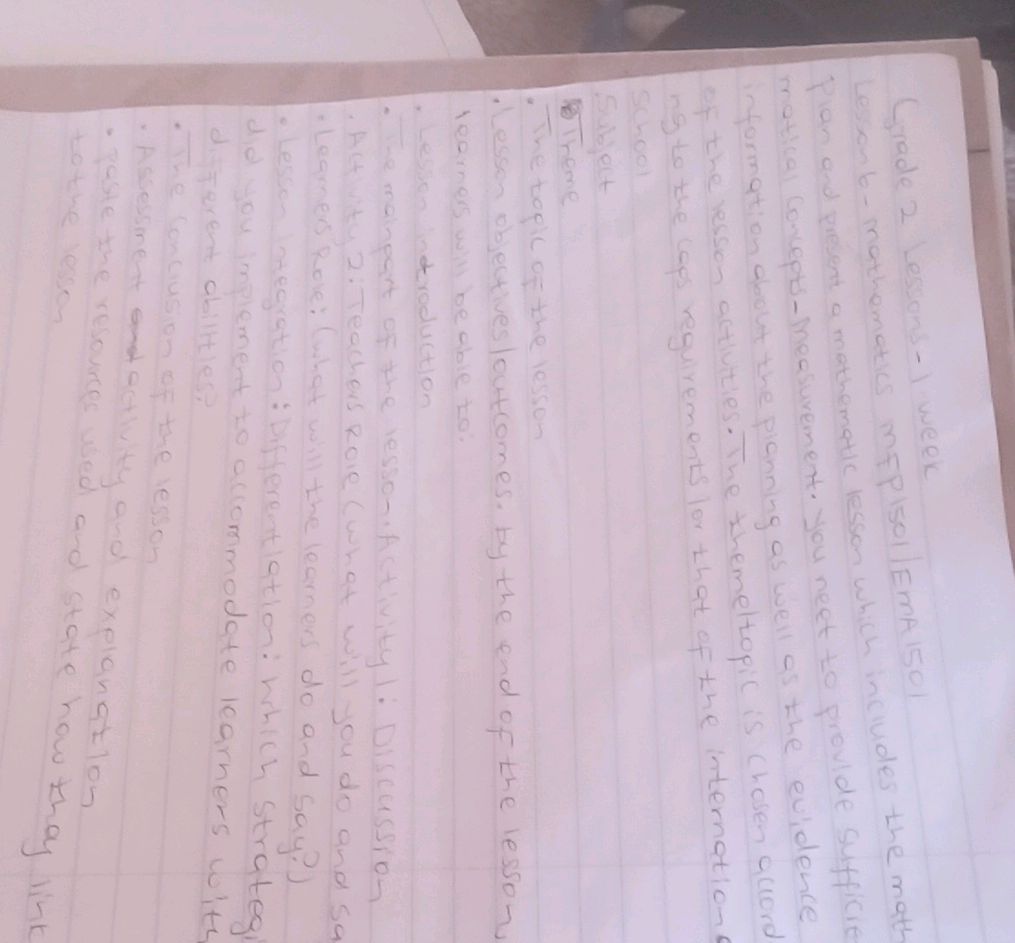 Grade 2 Lessons - 1 week
Lesson 6 - mathematics MFP1501/EMA1501
plan ad present a mathematic lesson which includes the math
matical concepts - Measurement. you need to provide sufficie
information about the planning as well as the evidence
of the lesson activities. The theme/topic is chosen accord
ng to the caps requirements/or that of the internationa
School
Subject
Theme
• The topic of the lesson
• Lesson objectives/outcomes. by the end of the lesson,
learners will be able to:
• Lesson introduction
• The mainpart of the lesson. Activity 1: Discussion
• Activity 2: Teachers Role (what will you do and sa
• Learners Role: (what will the learners do and say?)
• Lesson integration: Differentiation: which strategi
did you implement to accommodate learners with
different abilities?
• The conclusion of the lesson
• Assessment activity and explanation
• paste the resources used and state how they link
to the lesson